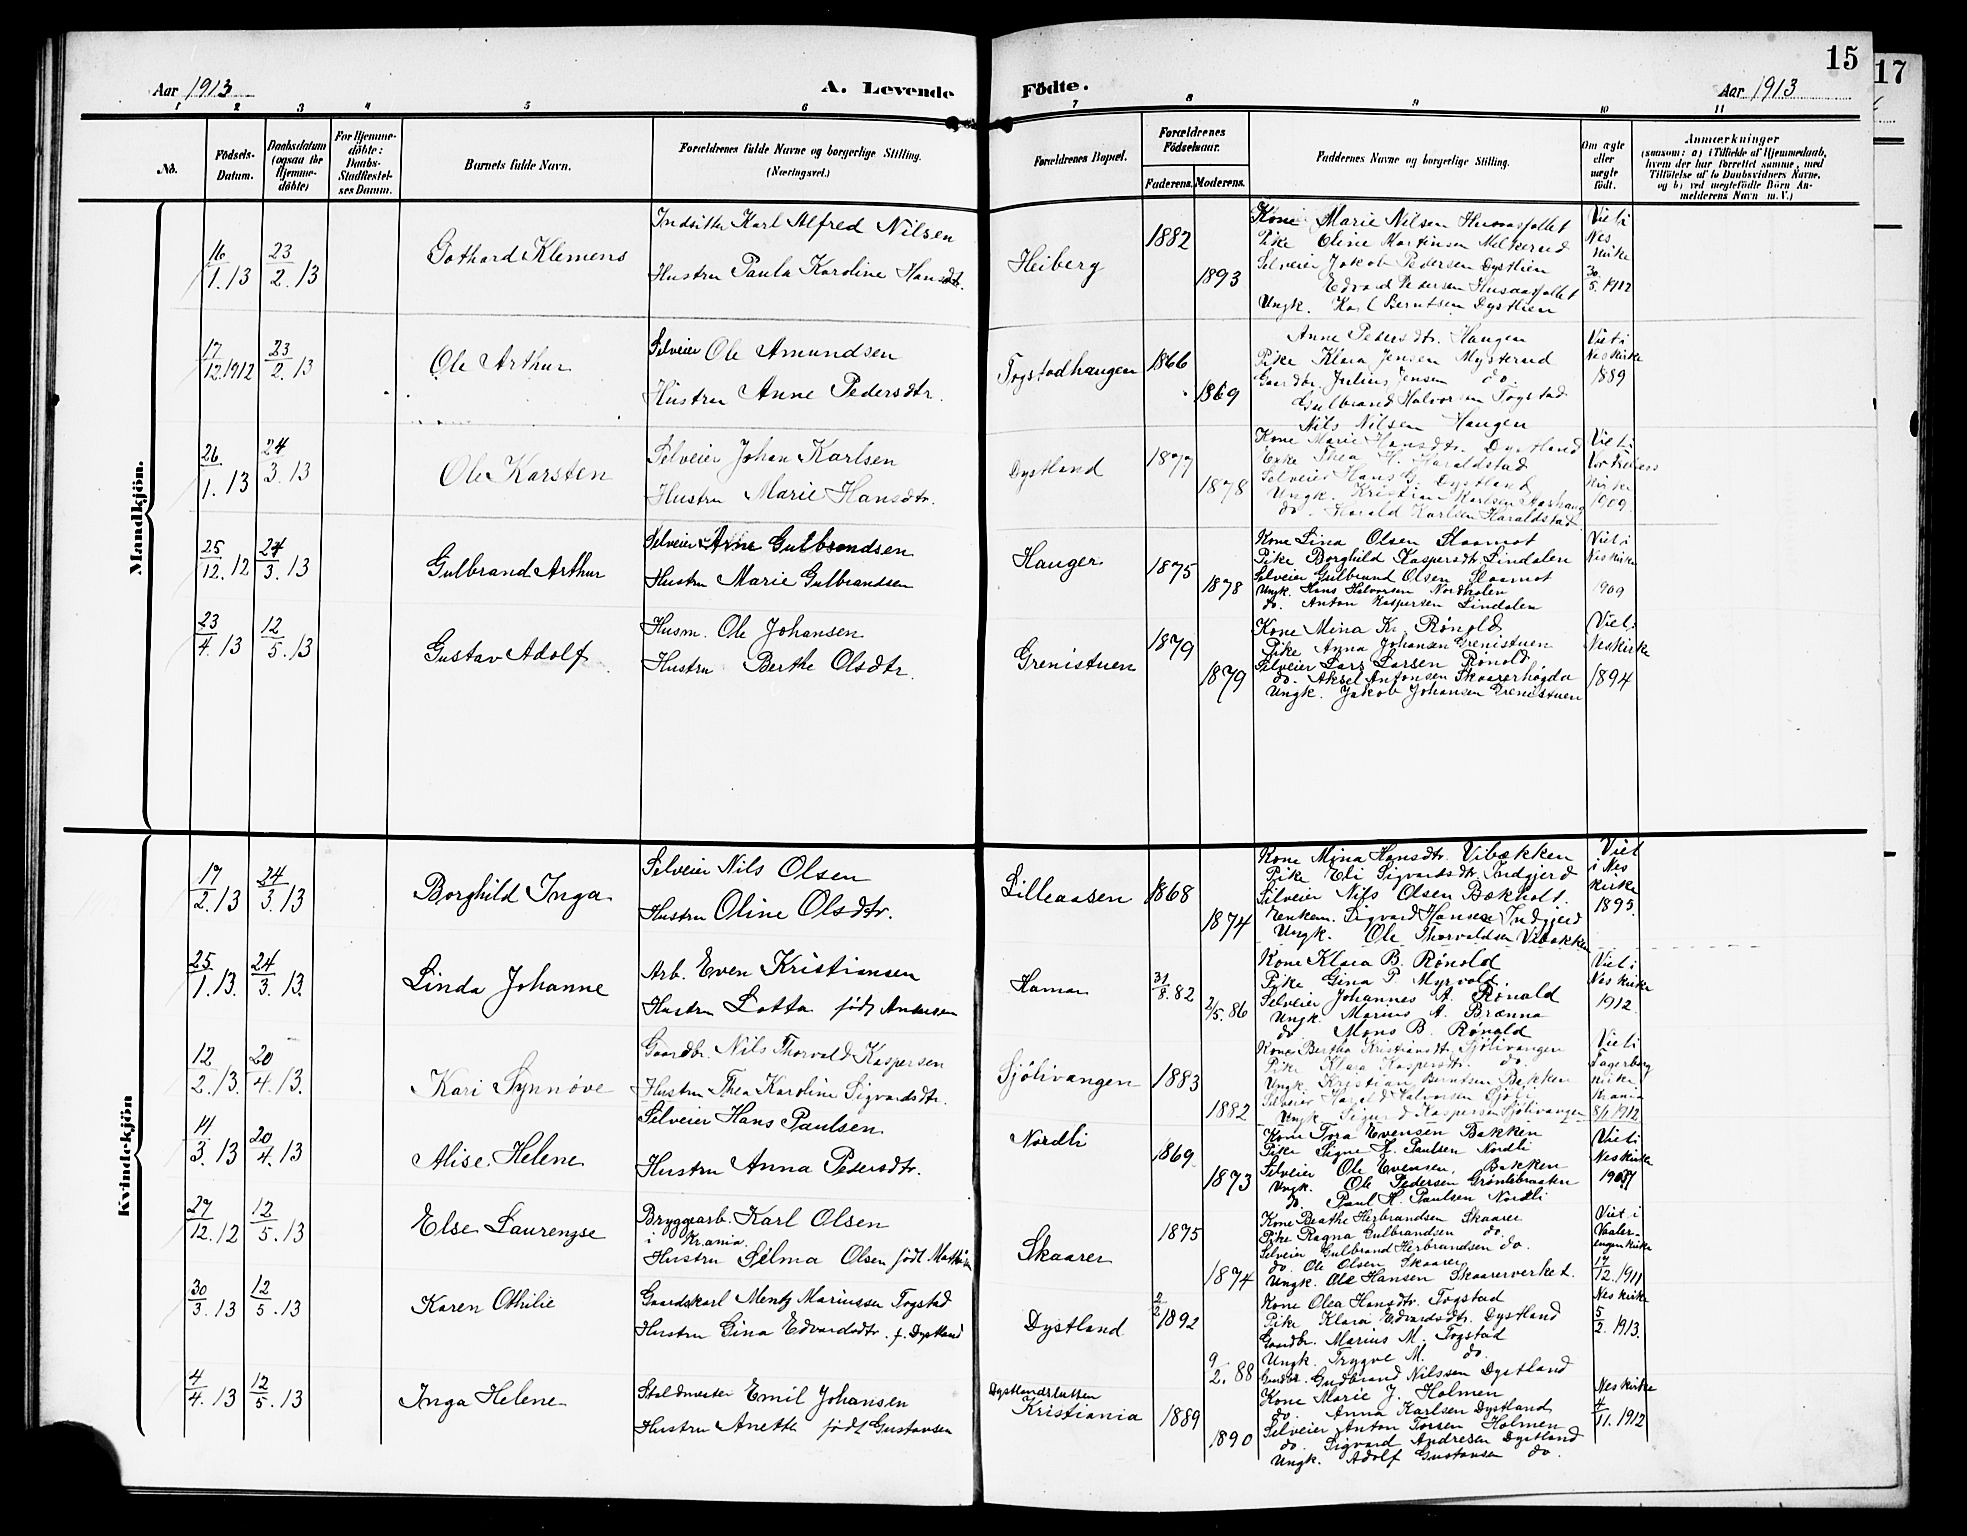 15
17
Aar 1913
A. Levende
Födte.
Aar 1913
1 2 3 4 5 6 7 8 9 10 11
No.
Födsels-Datum.
Daabsdatum (ogsaa for Hjemme-döbte)
For Hjemme-döbte: Daabs-Stadfæstel-ses Datum.
Barnets fulde Navn.
Forældrenes fulde Navne og borgerlige Stilling.
(Næringsvei.)
Forældrenes Bopæl.
Forældrenes Födselsaar.
Faderens. Moderens.
Faddernes Navne og borgerlige Stilling.
Om ægte eller uægte födt.
Anmærkninger
(saasom: a) i Tilfælde af Hjemmedaab,
hvem der har forrettet samme, med
Tilföielse af to Daabsvidners Navne,
og b) ved uægtefödte Börn An-
melderens Navn m. V.)
Mandkjön.
16/1.13 23/2.13 Gothard Klemens
Indsitter Karl Alfred Nilsen
Hustru Paula Karoline Hansdtr.
Heiberg 1882 1893
Kone Marie Nilsen Husaasfallet
Pike Eline Martinsen Melkerud
Selveier Jakob Pedersen Dystlien
Edvard Pedersen Husaasfallet
Ungk. Karl Berntsen Dystlien
Viet i
Nes
kirke
30/5.1912
17/12.1912 23/2.13 Ole Arthur
Selveier Ole Amundsen
Hustru Anne Pedersdtr.
Togstadhaugen 1866 1869
Anne Pedersdtr. Haugen
Pike Klara Jensen Mysterud
Gaardbr. Julius Jensen do.
Gulbrand Halvorsen Togstad
Nils Nilsen Haugen
Viet i
Neskirke
1889
26/1.13 24/3.13 Ole Karsten
Selveier Johan Karlsen
Hustru Marie Hansdtr.
Dystland 1877 1878
Kone Marie Hansdtr. Dystland
Enke Thea H. Haraldstad
Selveier Hans G. Dystland
Ungk. Kristian Karlsen
do. Harald Karlsen Haraldstad
Viet i
Vor Frelsers
kirke
1909.
25/12.12 24/3.13 Gulbrand Arthur
Selveier Arne Gulbrandsen
Hustru Marie Gulbrandsen
Hauger 1875 1878
Kone Lina Olsen Slaamot
Pike Borghild Kaspersdtr. Lindalen
Selveier Gulbrand Olsen Slaamot
Ungk. Hans Halvorsen Nordholen
do. Anton Kaspersen Lindalen
Viet i
Neskirke
1909
23/4.13 12/5.13 Gustav Adolf
Husm. Ole Johansen
Hustru Berthe Olsdtr.
Grenistuen 1879 1879
Kone Mina Kr. Rönold
Pike Anna Johansen Grenistuen
Selveier Lars Larsen Rönold
do. Aksel Antonsen Skaarerhögda
Ungk. Jakob Johansen Grenistuen
Viet i
Neskirke
1894
Kvindekjön
17/2.13 24/3.13 Borghild Inga
Selveier Nils Olsen
Hustru Oline Olsdtr.
Lilleaasen 1868 1874
Kone Mina Hansdtr. Vibækken
Pike Eli Sigvardsdtr. Indgjerd
Selveier Nils Olsen Bækholt.
Enkem. Sigvard Hansen Indgjerd
Ungk. Ole Thorvaldsen Vibækken
Viet
i Nes
kirke
1895.
25/1.13. 24/3.13. Linda Johanne
Arb. Even Kristiansen
Hustru Lotta född Andersen
Hamar 31/8.82 2/5.86
Kone Klara B. Rönold
Pike Gina P. Myrvold
Selveier Johannes A. Rönald
Ungk. Marius A. Brænna
do Mons B. Rönold
Viet i
Neskirke
1912.
12/2.13. 20/4.13. Kari Synnöve
Gaardbr. Nils Thorvald Kaspersen
Hustru Thea Karoline Sigvardsdtr.
Sjölivangen 1883 1882
Kone Bertha Kristiansdtr. Sjölivangen
Pike Klara Kaspersdtr. do.
Ungk. Kristian Berntsen Bakken
Selveier Harald Halvorsen Sjöli
Ungk. Sigurd Kaspersen Sjölivangen
Viet i
Fagerborg
kirke
Krania
8/1.1912
11/3.13 20/4.13 Alise Helene
Selveier Hans Paulsen
Hustru Anna Pedersdtr.
Nordli 1869 1873
Kone Tora Evensen Bakken
Pike Signe H. Paulsen Nordli
Selveier Ole Evensen, Bakken
Ungk. Ole Pedersen Grönlibraaten
do. Paul H. Paulsen Nordli
Viet i
Neskirke
27/12.12 12/5.13 Else Laurengse
Bryggearb. Karl Olsen
i Kr.ania.
Hustru Selma Olsen född
Skaarer 1875 1874
Kone Beathe Herbrandsen Skaarer
Pike Ragna Gulbrandsen do.
Selveier Gulbrand Herbrandsen do.
do. Ole Olsen Skaarer
Ungk. Ole Hansen Skaarerverket.
Viet i
Vaaler-
engen kirke
17/12.1911
30/3.13 12/5.13 Karen Othilie
Gaardskarl Mentz Mariussen Togstad
Hustru Gina Edvardsdtr. f. Dystland
Dystland 2/2 1892 9/2.88
Kone Olea Hansdtr. Togstad
Pike Klara Edvardsdtr. Dystland
Gaardbr. Marius M. Togstad
Ungk. Trygve M. do.
Gaardbr. Gudbrand Nilssen Dystland
Neskirke
5/2.1913.
4/4.13 12/5.13 Inga Helene
Staldmester Emil Johansen
Hustru Anette född Gustavsen
Dystlandslutten
Kristiania 1889 1890
Kone Marie J. Holmen
do. Anna Karlsen Dystland
Selveier Anton Torsen Holmen
do. Sigvard Andresen Dystland
Ungk. Adolf Gustavsen do.
Neskirke
4/11.1912